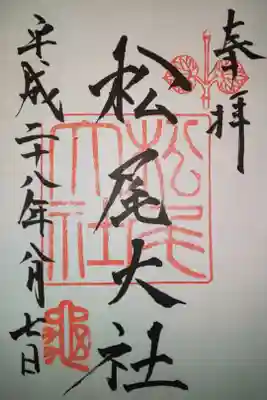 奉拝
松尾大社
松尾大社
平成二十八年八月七日
亀